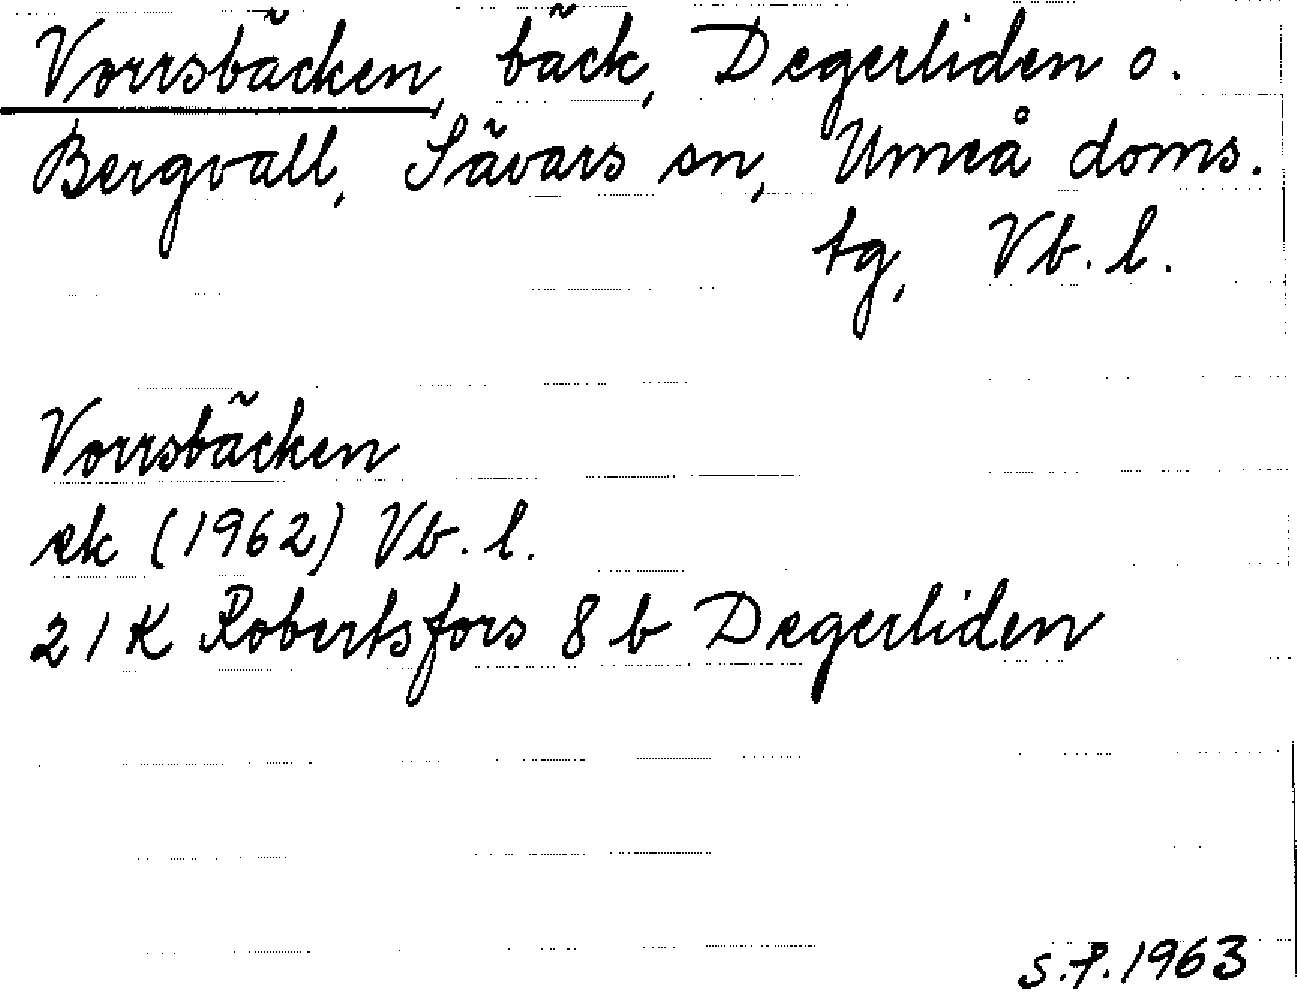 Vorrsbäcken, bäck, Degerliden o.
Bergvall, Sävars sn, Umeå doms.
tg, Vb. l.
Vorrsbäcken
ek (1962) Vb. l.
21 K Robertsfors 8 b Degerliden
S.P. 1963